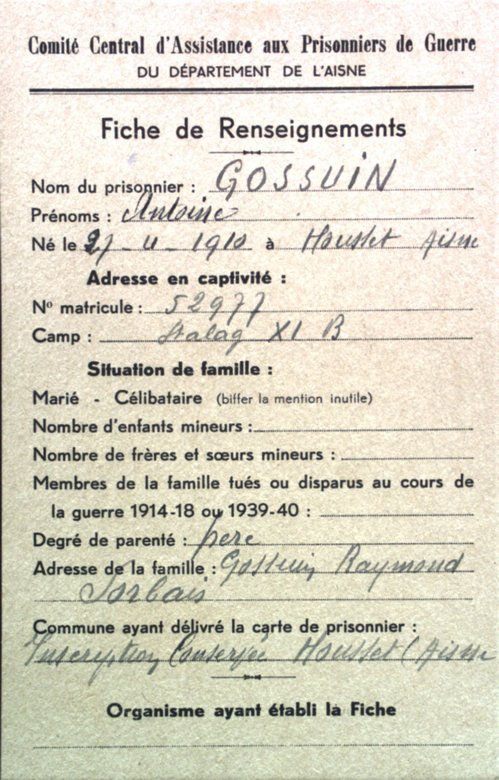 Comité Central d'Assistance aux Prisonniers de Guerre
DU DÉPARTEMENT DE L'AISNE
Fiche de Renseignements
Nom du prisonnier : GOSSUIN
Prénoms : Antoine
Né le 27-4-1910 à Housset Aisne
Adresse en captivité :
No matricule : 52977
Camp : Stalag XI B
Situation de famille :
Marié - Célibataire (biffer la mention inutile)
Nombre d'enfants mineurs :
Nombre de frères et sœurs mineurs :
Membres de la famille tués ou disparus au cours de
la guerre 1914-18 ou 1939-40 :
Degré de parenté : père
Adresse de la famille : Gossuin Raymond
Sorbais
Commune ayant délivré la carte de prisonnier :
Inscription Conservée Housset (Aisne
Organisme ayant établi la Fiche